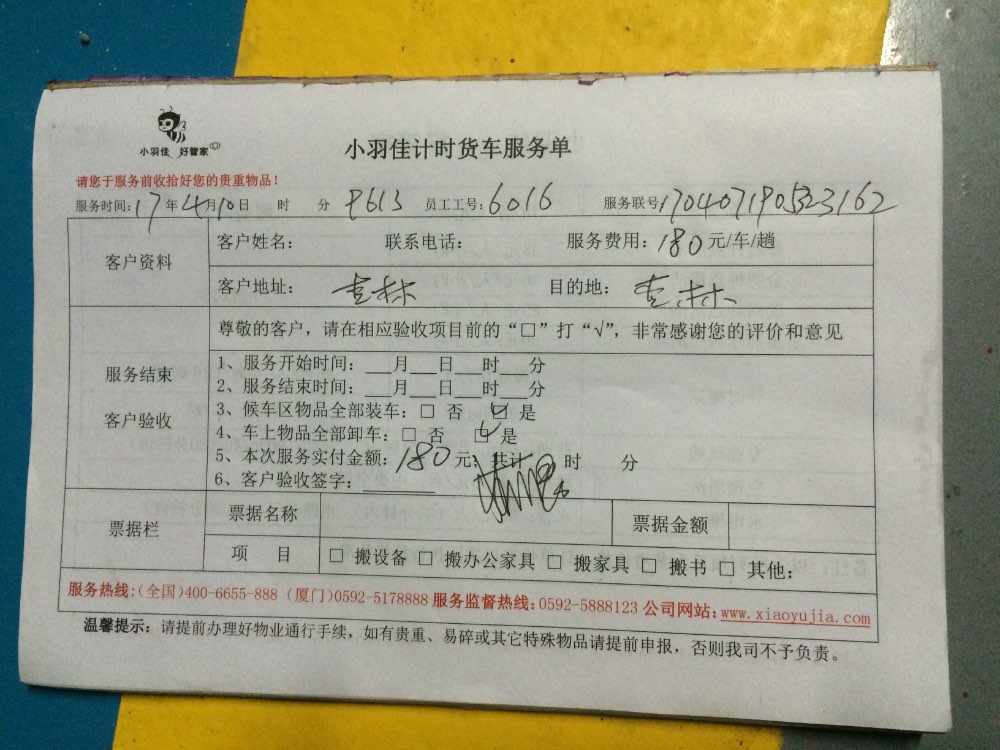 小羽佳 好管家
小羽佳计时货车服务单
请您于服务前收拾好您的贵重物品！
服务时间：17年4月10日 时 分 P613 员工工号：6016 服务联号
客户资料
客户姓名： 联系电话： 服务费用：180元/车/趟
客户地址：杏林 目的地：杏林
服务结束
客户验收
尊敬的客户，请在相应验收项目前的“□”打“√”，非常感谢您的评价和意见
1、服务开始时间：___月___日___时___分
2、服务结束时间：___月___日___时___分
3、候车区物品全部装车：□ 否 ☑ 是
4、车上物品全部卸车：□ 否 ☑ 是
5、本次服务实付金额：180元；共计 时 分
6、客户验收签字：
票据栏
票据名称 票据金额
项 目 □ 搬设备 □ 搬办公家具 □ 搬家具 □ 搬书 □ 其他：
服务热线：(全国)400-6655-888 (厦门)0592-5178888 服务监督热线：0592-5888123 公司网站：www.xiaoyujia.com
温馨提示：请提前办理好物业通行手续，如有贵重、易碎或其它特殊物品请提前申报，否则我司不予负责。